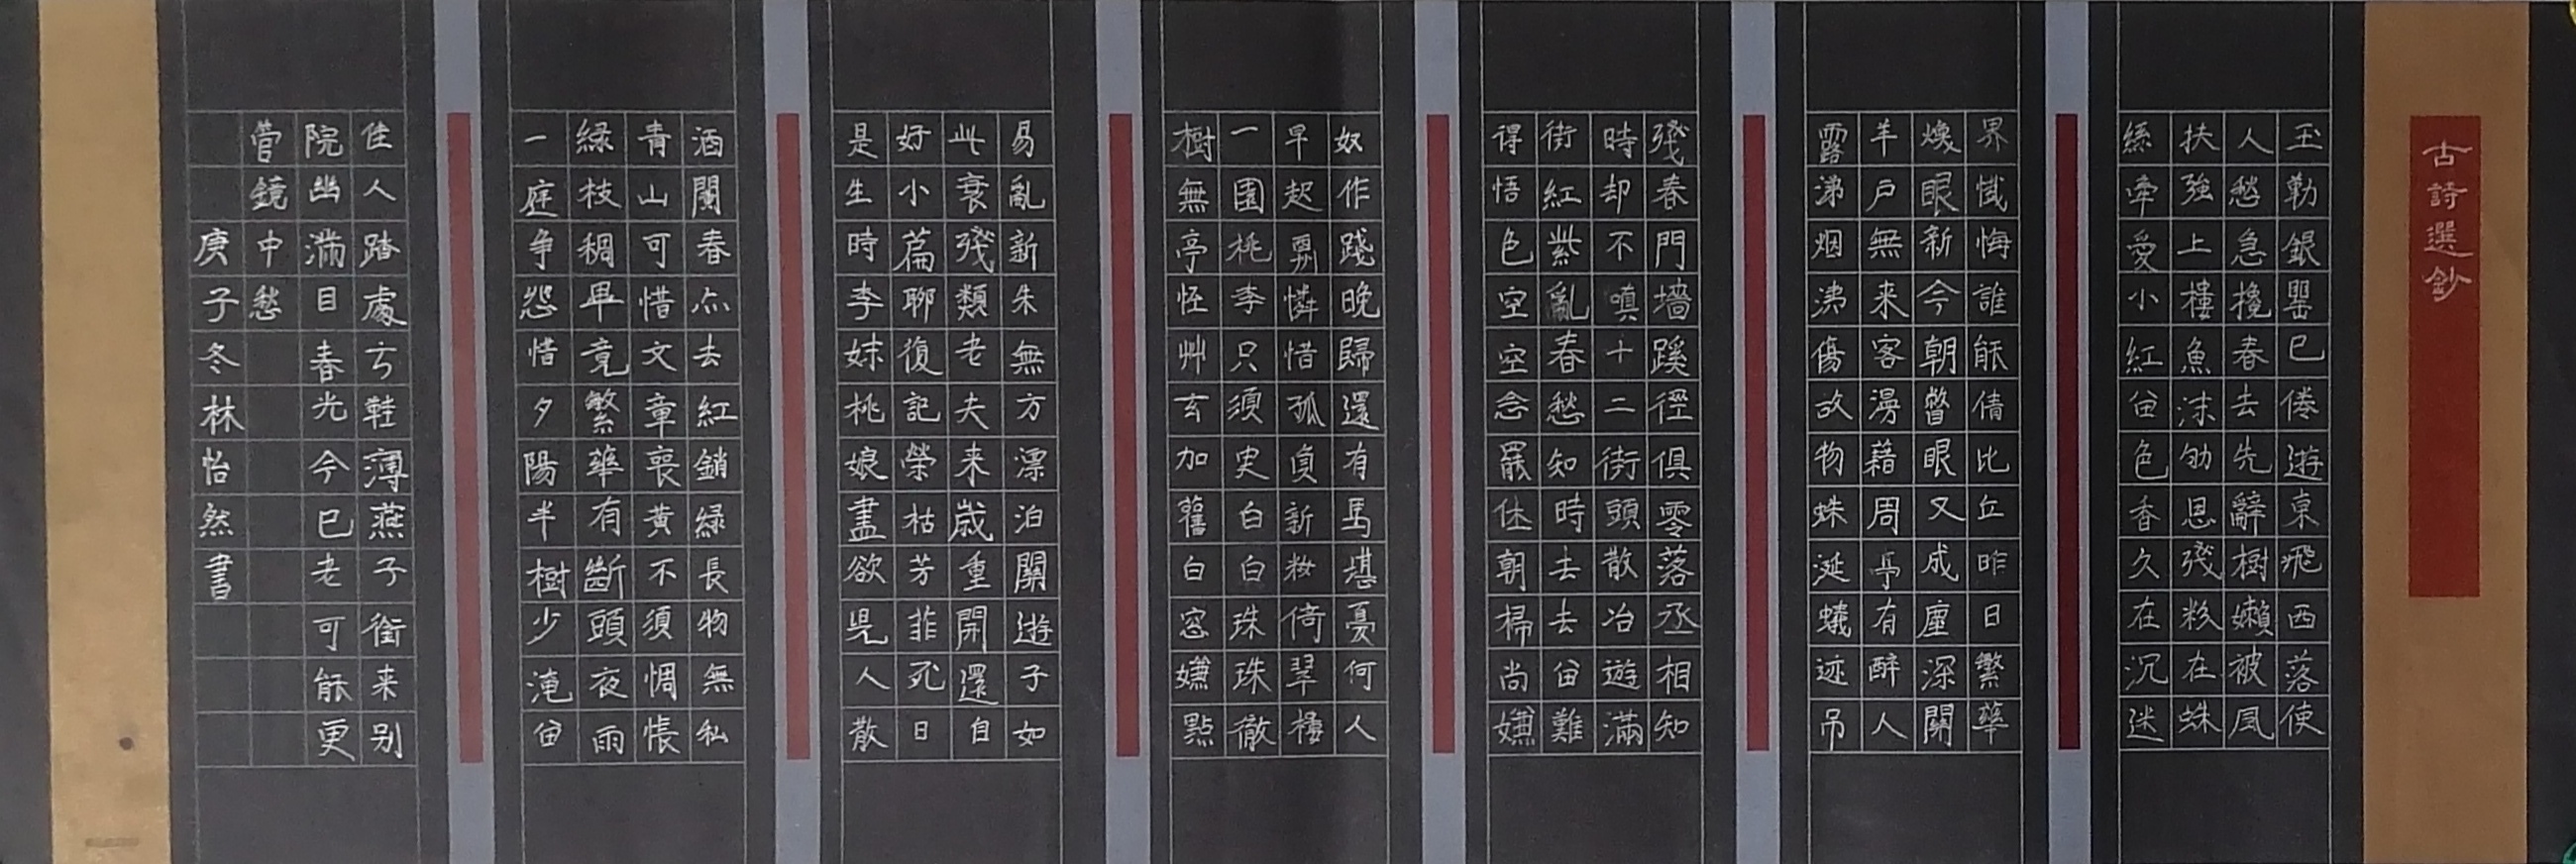 古詩選鈔
玉勒銀罌已倦遊東飛西落使
人愁急攙春去先辭樹嬾被風
扶強上樓魚沫劬恩殘粉在蛛
絲牽愛小紅留色香久在沉迷
界懺悔誰能倩比丘昨日繁華
煥眼新今朝瞥眼又成塵深關
羊戶無来客漫藉周亭有醉人
露涕烟洟傷故物蛛涎蟻迹吊
殘春門墻蹊徑俱零落丞相知
時却不嗔十二街頭散冶遊滿
街紅紫亂春愁知時去去留難
得悟色空空念罷休朝掃尚嫌
奴作踐晚歸還有馬堪憂何人
早起剽憐惜孤負新妝倚翠樓
一園桃李只須臾白白珠珠徹
樹無亭恠艸玄加舊白窓嫌點
易亂新朱無方漂泊關遊子如
此衰殘類老夫来歲重開還自
好小萹聊復記榮枯芳菲死日
是生時李妹桃娘盡欲兒人散
酒闌春亦去紅銷緑長物無私
青山可惜文章喪黃不須惆悵
緑枝稠畢竟繁華有斷頭夜雨
一庭爭怨惜夕陽半樹少淹留
佳人踏處弓鞋薄燕子銜来别
院幽滿目春光今已老可能更
管鏡中愁
庚子冬林怡然書